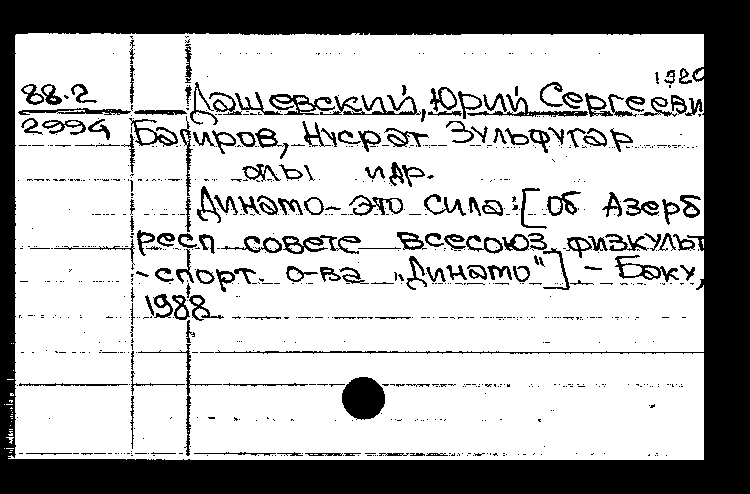 1920
88.2 Дашевский, Юрий Сергееви
2994 Багиров, Нусрат Зульфугар
оглы и др.
Динамо - это сила: [Об Азерб
респ. совете всесоюз. физкульт
-спорт. о-ва „Динамо"] - Баку,
1988.